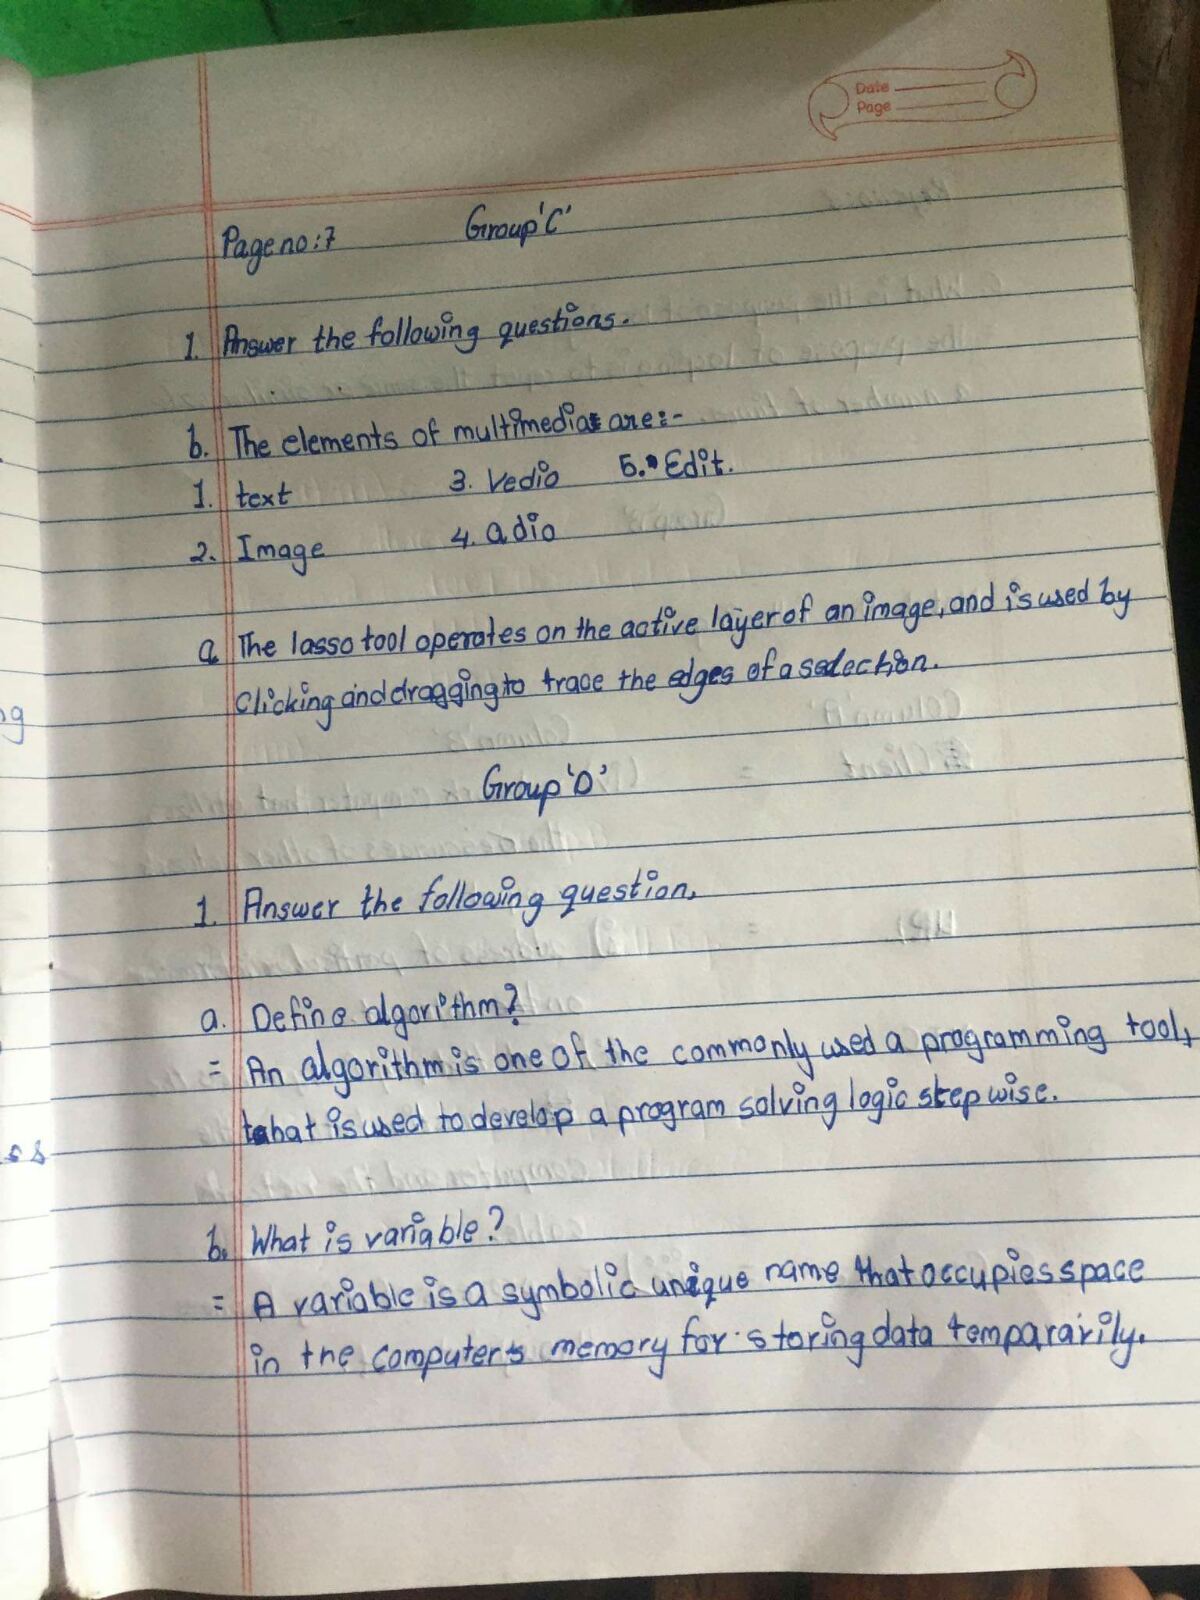 Date
Page
Page no:7 Group 'C'
1. Answer the following questions.
b. The elements of multimedia are:-
1. text 3. Vedio 5. Edit.
2. Image 4. adio
a The lasso tool operates on the active layer of an image, and is used by
Clicking and dragging to trace the edges of a selection.
Group 'D'
1. Answer the following question,
a. Define algorithm?
= An algorithm is one of the commonly used a programming tool,
that is used to develop a program solving logic step wise.
b. What is variable?
= A variable is a symbolic unique name that occupies space
in the computer's memory for storing data temparārily.